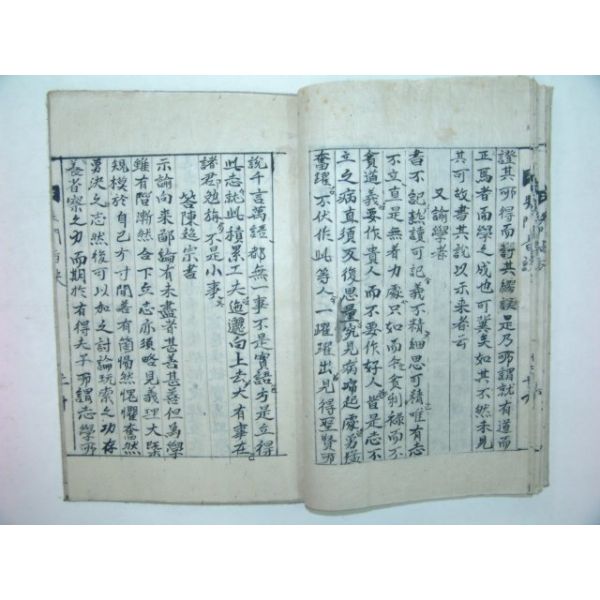 證其所得而訂其繆誤是乃所謂就有道而
正焉者而學之成也可冀矣如其不然未見
其可故書其說以示來者云
又諭學者
書不記熟讀可記義不精細思可精唯有志
不立直是無着力處只如而今貪利祿而不
貪道義要作貴人而不要作好人皆是志不
立之病直須反復思量究見病痛起處勇猛
奮躍不伏作此等人一躍躍出見得聖賢所
說千言萬語都無一事不是實語方是立得
此志就此積累工夫迤邐向上去大有事在
諸君勉旃不是小事
答陳超宗書
示諭向來鄙論有未盡者甚善甚善但為學
雖有階漸然合下立志亦須略見義理大槩
規模於自己方寸間若有箇惕然愧懼奮然
勇決之志然後可以加之討論玩索之功存
養省察之力而期於有得夫子所謂志學所